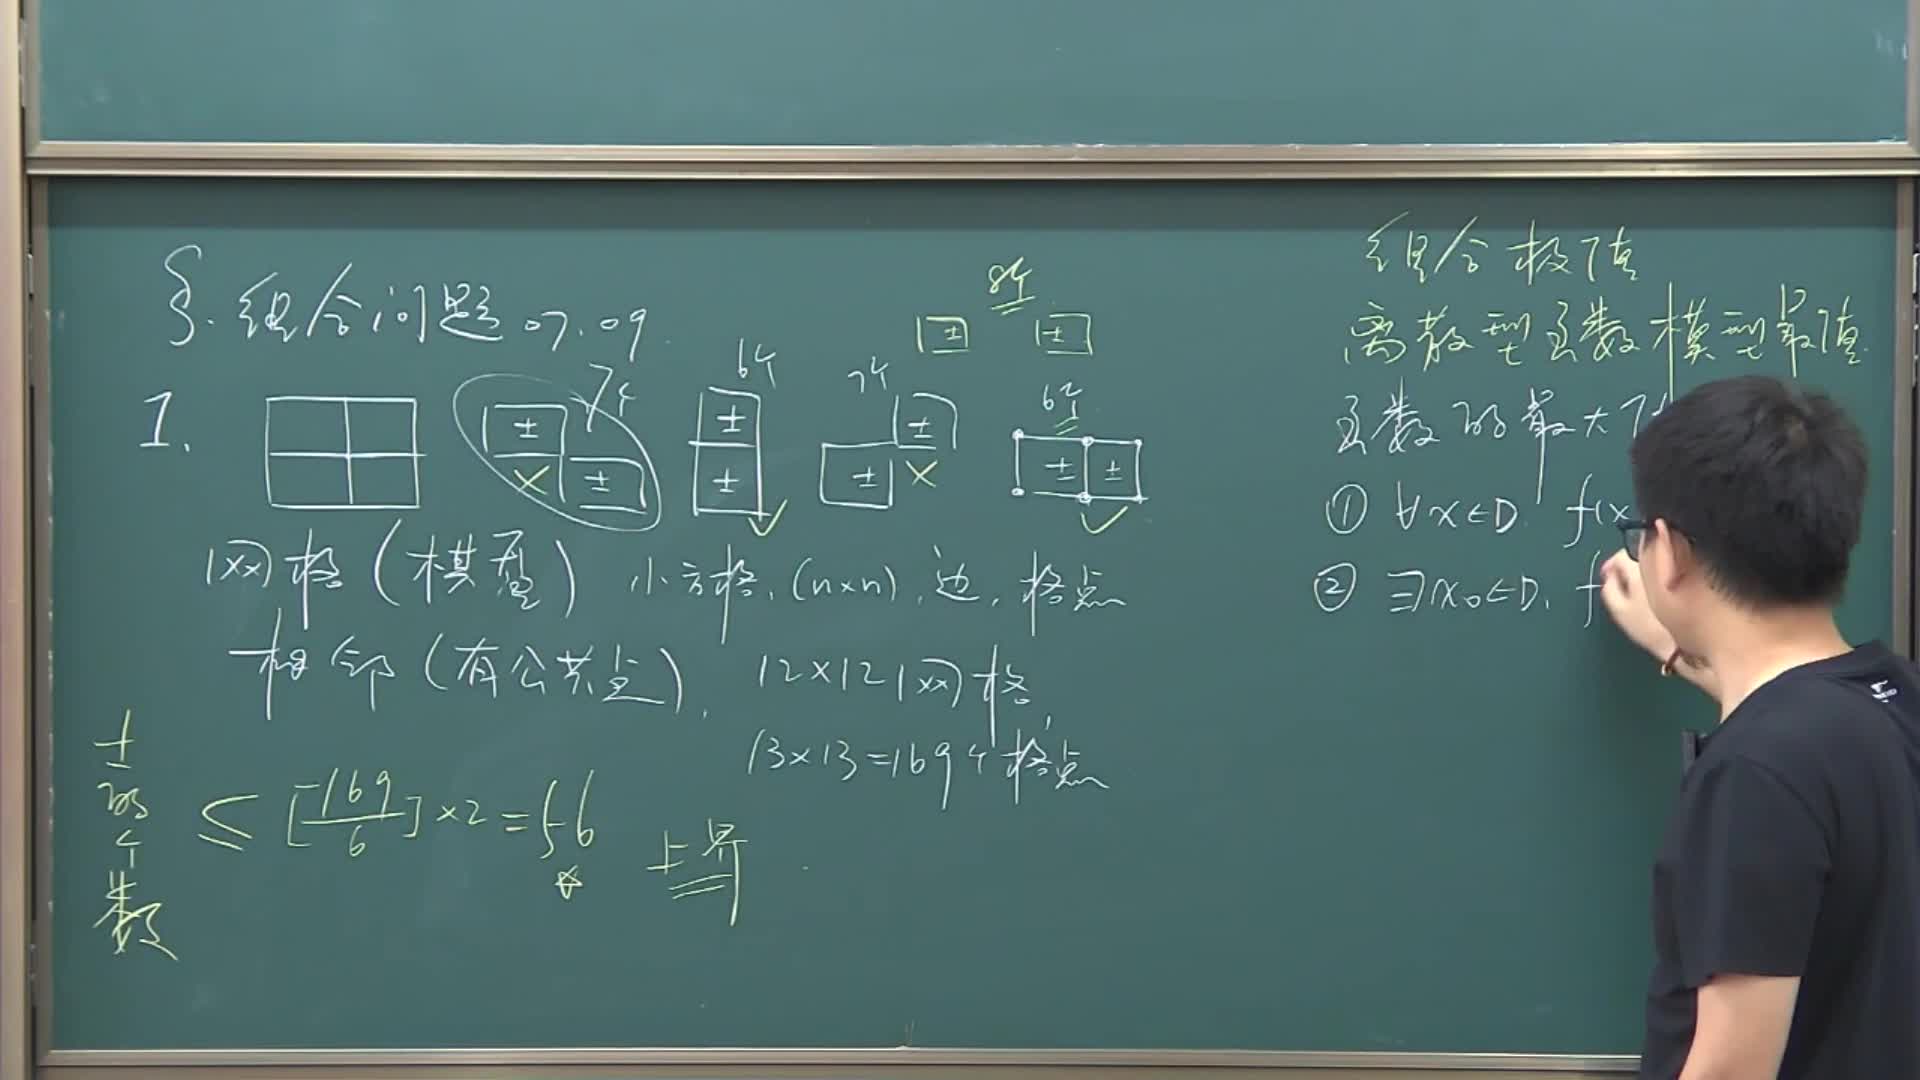 §. 组合问题 07.09.
1.
± ± 7个
6个 ± ±
7个 ±
±
8个
± ±
6个 ± ±
网格(棋盘) 小方格.(n×n),边,格点
相邻(有公共点). 12×12网格,
13×13=169个格点
士的个数 ≤ [169/6]×2=56 上界
组合极值
离散型函数模型最值
函数的最大
① ∀x∈D. f(x
② ∃x₀∈D. f